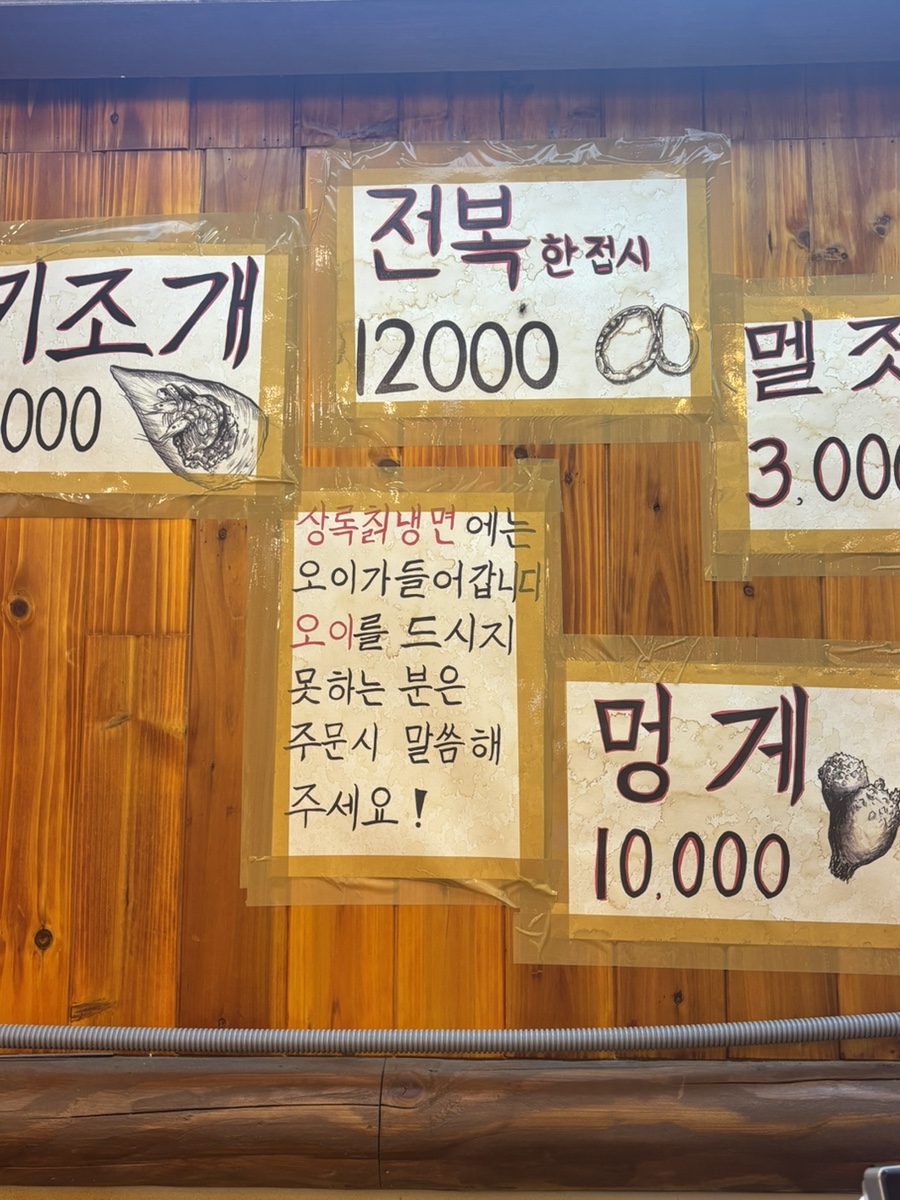 전복 한접시
12000
키조개
,000
멜젓
3,000
상록칡냉면에는
오이가들어갑니다
오이를 드시지
못하는 분은
주문시 말씀해
주세요!
멍게
10,000